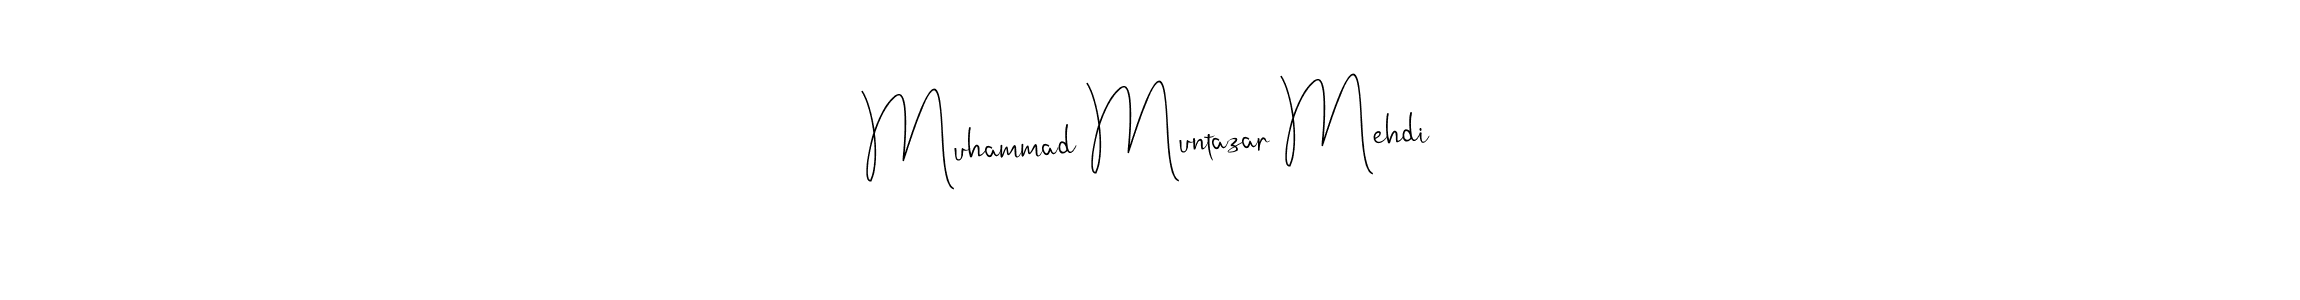 Muhammad Muntazar Mehdi